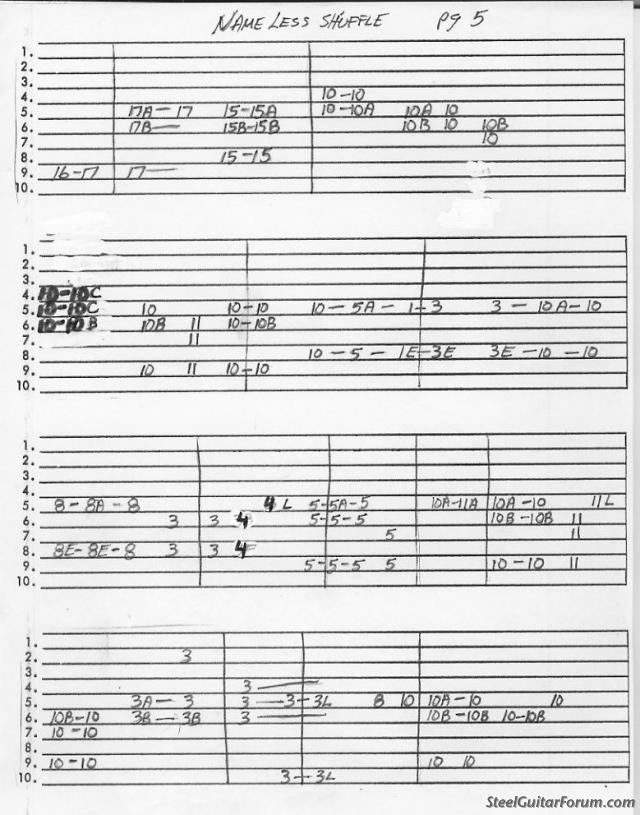 NAMELESS SHUFFLE pg 5
1.
2.
3.
4. 10-10
5. 17A-17 15-15A 10-10A 10A 10
6. 17B- 15B-15B 10B 10 10B
7. 10
8. 15-15
9. 16-17 17-
10.
1.
2.
3.
4. 10-10C
5. 10-10C 10 10-10 10-5A-1-3 3-10A-10
6. 10-10B 10B 11 10-10B
7. 11
8. 10-5-1E-3E 3E-10-10
9. 10 11 10-10
10.
1.
2.
3.
4.
5. 8-8A-8 4L 5-5A-5 10A-11A 10A-10 11L
6. 3 3 4 5-5-5 10B-10B 11
7. 5 11
8. 8E-8E-8 3 3 4
9. 5-5-5 5 10-10 11
10.
1.
2. 3
3.
4. 3-
5. 3A-3 3-3-3L 8 10 10A-10 10
6. 10B-10 3B-3B 3- 10B-10B 10-10B
7. 10-10
8.
9. 10-10 10 10
10. 3-3L
SteelGuitarForum.com